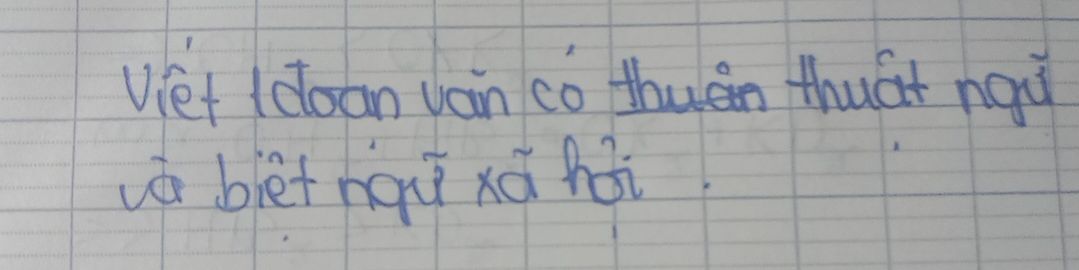 Viết 1 đoạn văn có thuân thuật ngữ
và biệt ngữ xã hội.